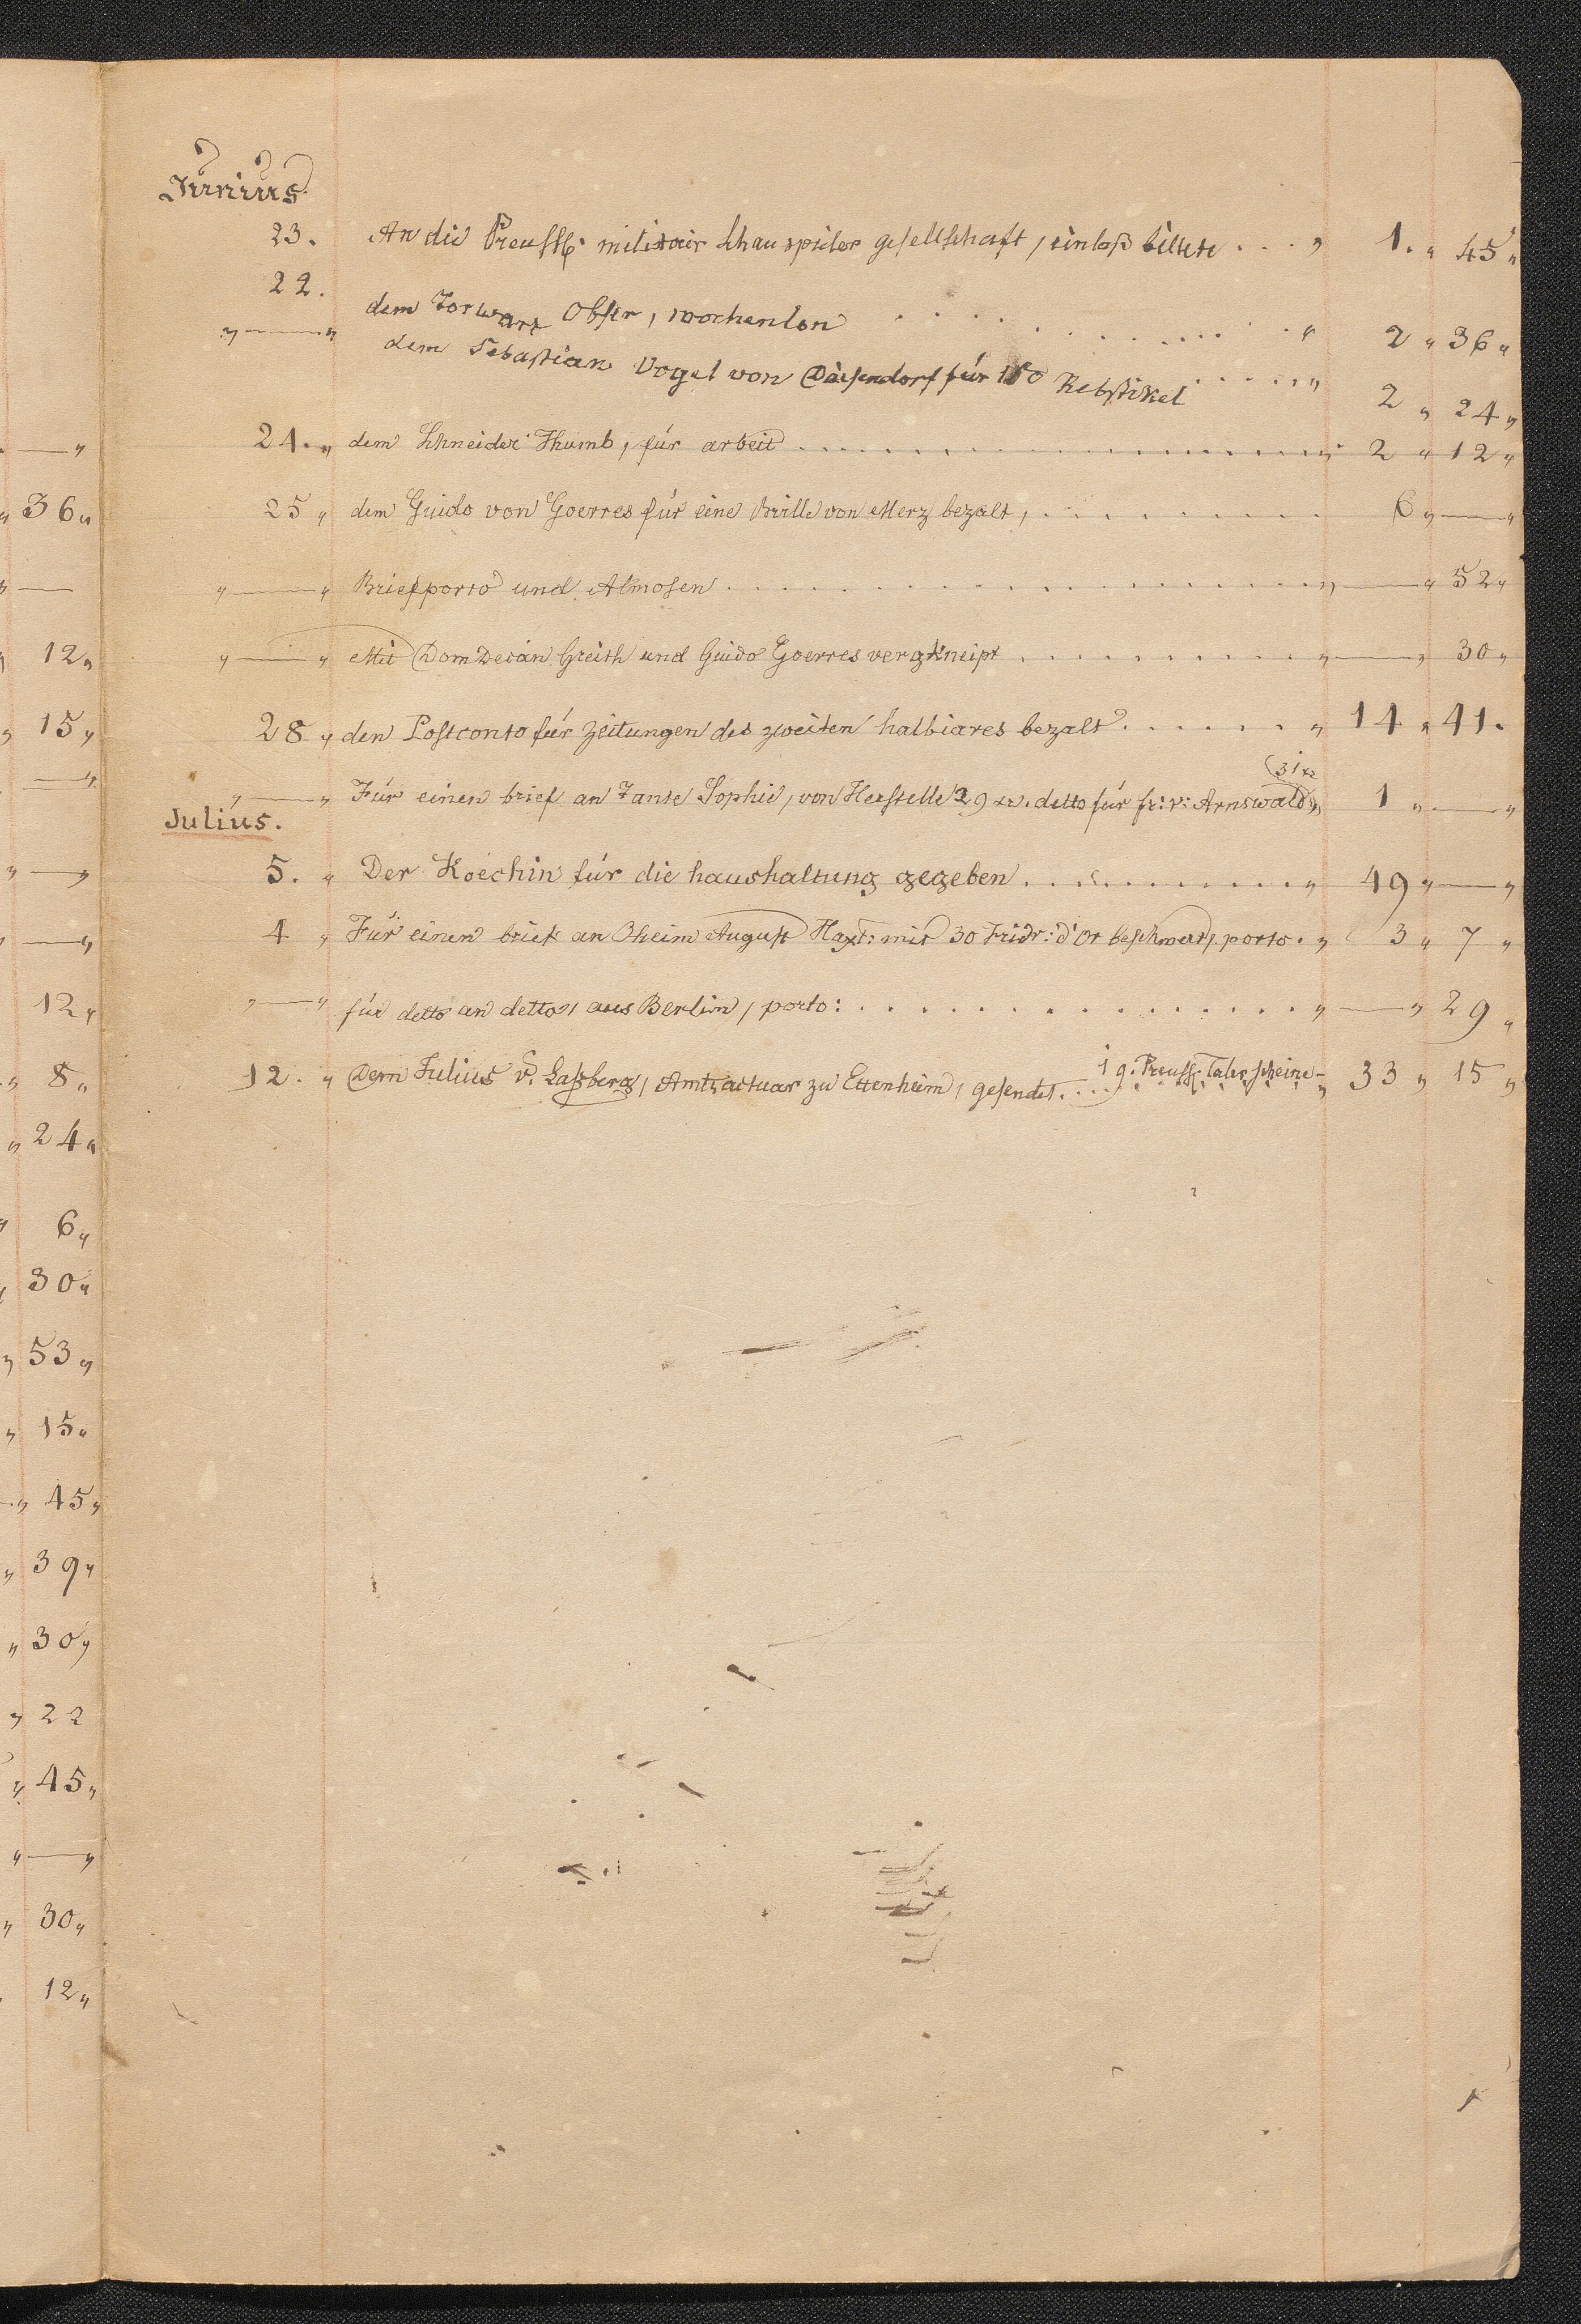 Junius
23. An die Preuss: militair schauspieler gesellschaft, einlaß billete . . . " 1. " 45 "
22. dem Torwart Obser, wochenlon . . . . . . . . . . " 2 " 36 "
" — " dem Sebastian Vogel von Daisendorf für 150 Rebstikel . . . . . " 2 " 24 "
24. " dem Schneider Thumb, für arbeit . . . . . . . . . . " 2 " 12 "
25 " dem Guido von Goerres für eine Brille von Merz bezalt, . . . . . . . . . 6 " — "
" — " Briefporto und Almosen . . . . . . . . . . " — " 52 "
" — " Mit Dom Decan Greith und Guido Goerres verkneipt . . . . . . . . . . " — " 30 "
28 " den Postconto für zeitungen des zweiten halbiares bezalt . . . . . . . " 14 " 41.
(31 xr
" — " Für einen brief an Tante Sophie, von Herstelle 29 xr. detto für fr: v: Arnswald " 1 " — "
Julius.
5. " Der Koechin für die haushaltung gegeben . . . . . . . . . . " 49 " — "
4 " Für einen brief an Oheim August Haxt: mit 30 Fridr: d'Or beschwert, porto. " 3 " 7 "
" — " für detto an detto, aus Berlin, porto: . . . . . . . . . . " — " 29 "
19. Preuss. Taler scheine –
12. " Dem Julius v. Laßberg, Amtsactuar zu Ettenheim, gesendet. . . . . . . . " 33 " 15 "
"
" 36 "
" —
" 12 "
" 15 "
— "
" — "
" — "
12 "
" 8 "
" 24 "
" 6 "
" 30 "
" 53 "
" 15 "
— " 45 "
" 39 "
" 30 "
" 22
" 45 "
" — "
" 30 "
12 "